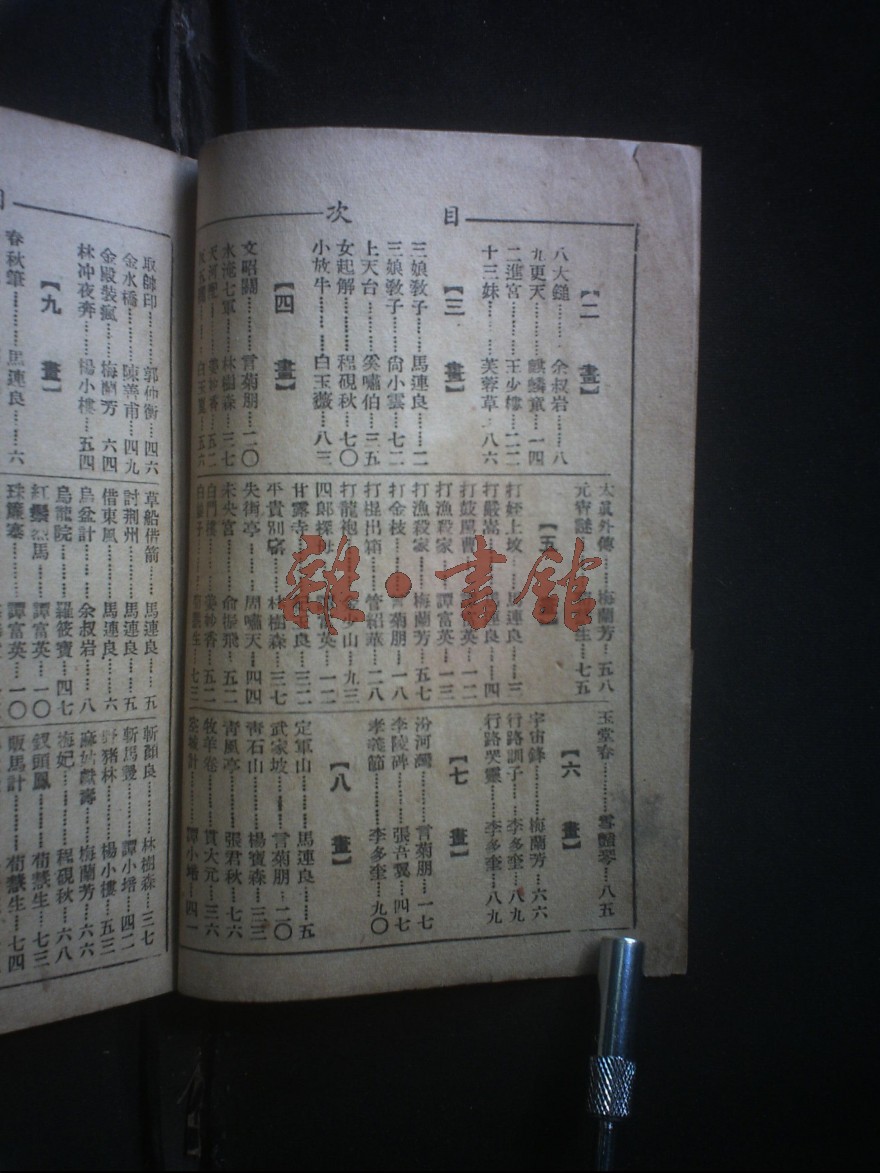 目次
【二畫】
八大鎚………余叔岩……八
九更天………麒麟童…一四
二進宮………王少樓…二二
十三妹………芙蓉草…八六
【三畫】
三娘教子……馬連良……二
三娘教子……尙小雲…七二
上天台………奚嘯伯…三五
女起解………程硯秋…七〇
小放牛………白玉薇…八三
【四畫】
文昭關………言菊朋…二〇
水淹七軍……林樹森…三七
天河配………姜妙香…五二
五六
太眞外傳……梅蘭芳…五八
元宵謎 生…七五
【五
打姪上坟……馬連良……三
打嚴嵩 連良……四
打鼓罵曹 英…一二
打漁殺家……譚富英…一三
打漁殺家……梅蘭芳…五七
打金枝………言菊朋…一八
打棍出箱……管紹華…二八
打龍袍 山…九三
四郎探母 富英…一二
甘露寺 良…三二
平貴別窰……林樹森…三七
失街亭………周嘯天…四四
未央宮………俞振飛…五二
白門樓………姜妙香…五二
生…七三
玉堂春………雪豔琴…八五
【六畫】
宇宙鋒………梅蘭芳…六六
行路訓子……李多奎…八九
行路哭靈……李多奎…八九
【七畫】
汾河灣………言菊朋…一七
李陵碑………張吾翼…四七
孝義節………李多奎…九〇
【八畫】
定軍山………馬連良……五
武家坡………言菊朋…二〇
靑石山………楊寶森…三三
靑風亭………張君秋…七六
牧羊卷………貫大元…三六
譚小培…四一
取帥印………郭仲衡…四六
金水橋………陳善甫…四九
金殿裝瘋……梅蘭芳…六四
林冲夜奔……楊小樓…五四
【九畫】
春秋筆………馬連良……六
草船借箭……馬連良……五
討荆州………馬連良……五
借東風………馬連良……六
烏盆計………余叔岩……八
烏龍院………羅筱寶…四七
紅鬃烈馬……譚富英…一〇
珠簾寨………譚富英…一〇
斬顏良………林樹森…三七
斬馬謖………譚小培…四二
野猪林………楊小樓…五三
麻姑獻壽……梅蘭芳…六六
梅妃…………程硯秋…六八
釵頭鳳………荀慧生…七三
販馬計………荀慧生…七四
雜·書館